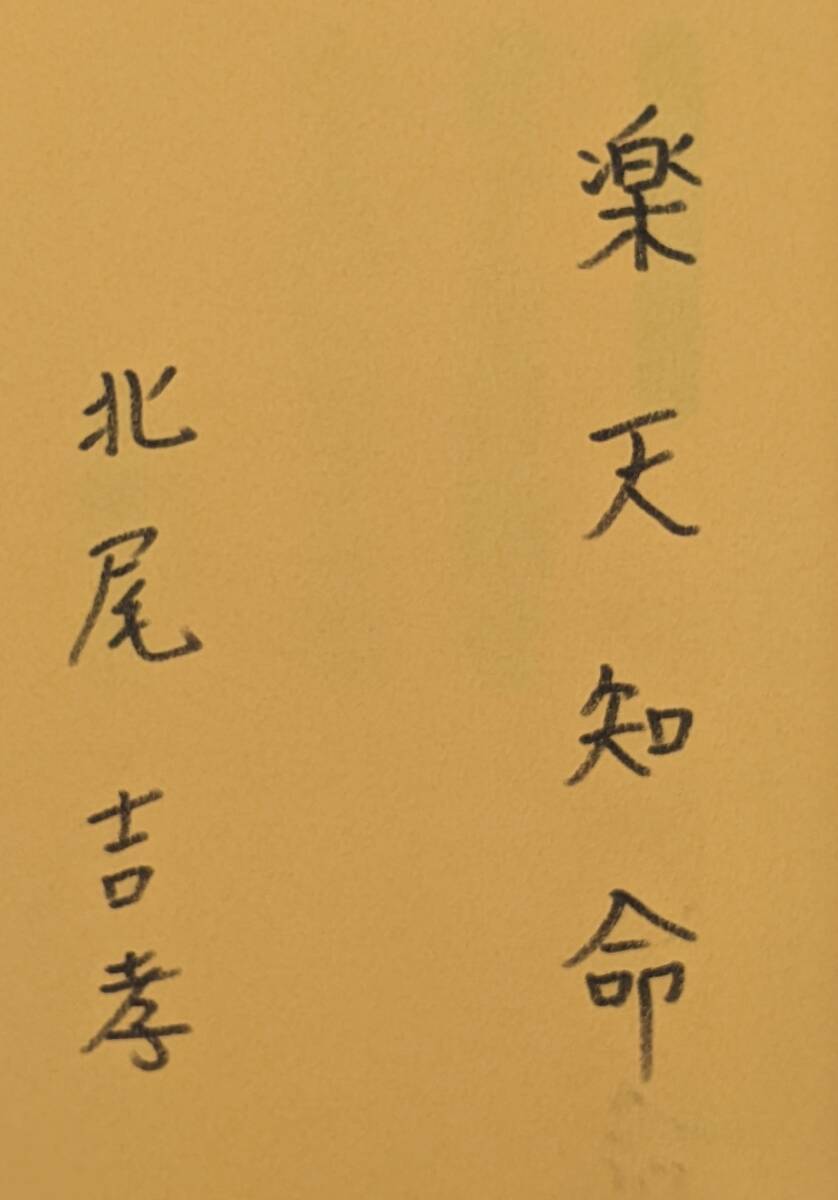 楽天知命
北尾吉孝